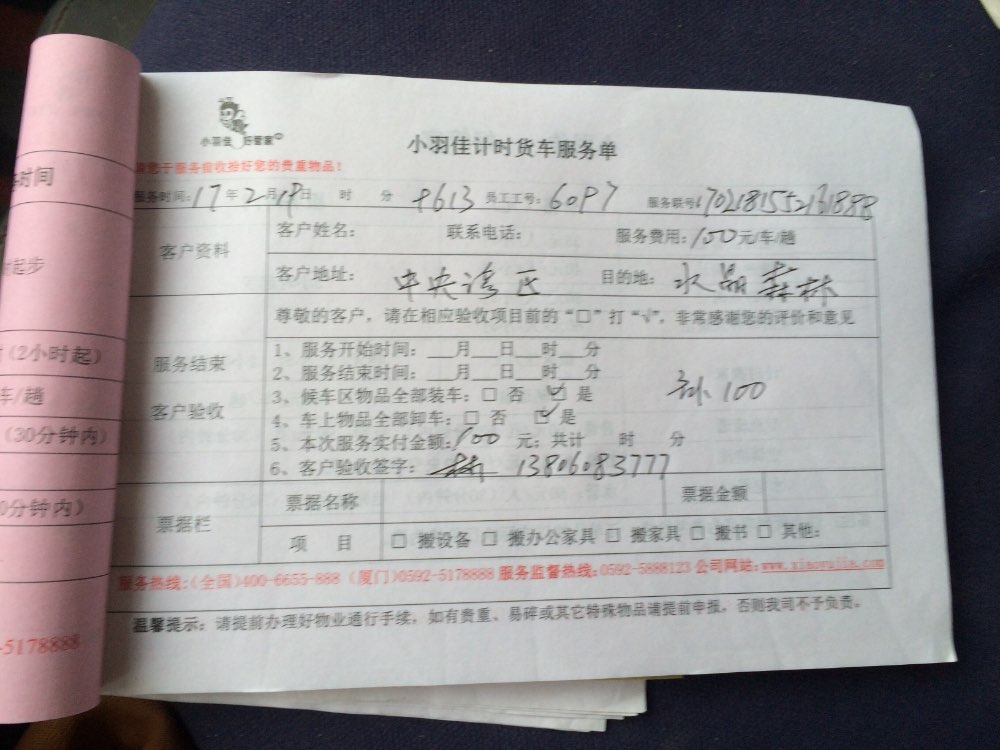 小羽佳 好管家
小羽佳计时货车服务单
请您于服务前收拾好您的贵重物品！
服务时间：17年2月19日 时 分 员工工号：6097 服务联号
客户资料
客户姓名： 联系电话： 服务费用：100元/车/趟
客户地址：中央湾区 目的地：水晶森林
尊敬的客户，请在相应验收项目前的“□”打“√”，非常感谢您的评价和意见
服务结束
客户验收
1、服务开始时间：___月___日___时___分
2、服务结束时间：___月___日___时___分
3、候车区物品全部装车：□ 否 ☑ 是
4、车上物品全部卸车：□ 否 ☑ 是
100
5、本次服务实付金额：100 元；共计 时 分
6、客户验收签字：林 13806083777
票据栏
票据名称 票据金额
项 目 □ 搬设备 □ 搬办公家具 □ 搬家具 □ 搬书 □ 其他：
服务热线：(全国)400-6655-888 (厦门)0592-5178888 服务监督热线：0592-5888123 公司网站：www.xiaoyujia.com
温馨提示：请提前办理好物业通行手续，如有贵重、易碎或其它特殊物品请提前申报，否则我司不予负责。
时间
起步
(2小时起)
车/趟
(30分钟内)
0分钟内)
-5178888